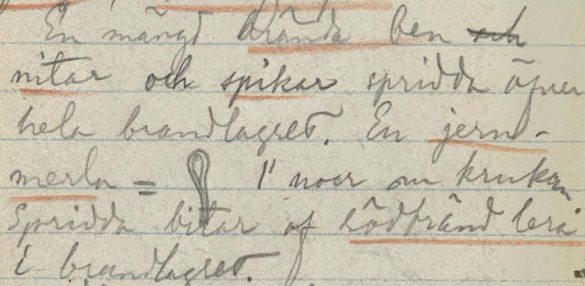 En mängd brända ben och
nitar och spikar spridda öfver
hela brandlagret. En jern-
merla = 1' norr om krukan
Spridda bitar af rödbränd lera
i brandlagret.